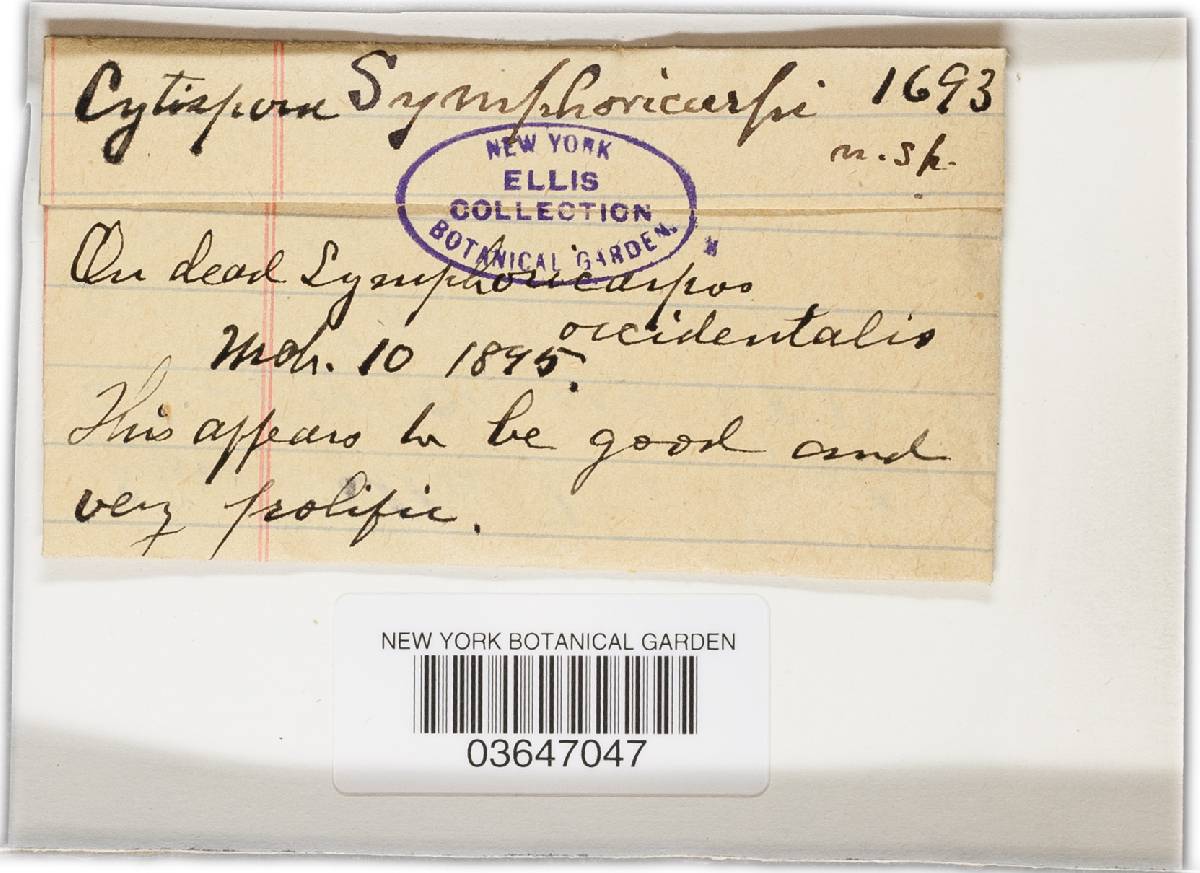 Cytispora Symphoricarpi 1693
n. sp.
NEW YORK
ELLIS
COLLECTION
BOTANICAL GARDEN.
On dead Symphoricarpos
occidentalis
Mch. 10 1895.
This appears to be good and
very prolific.
NEW YORK BOTANICAL GARDEN
03647047